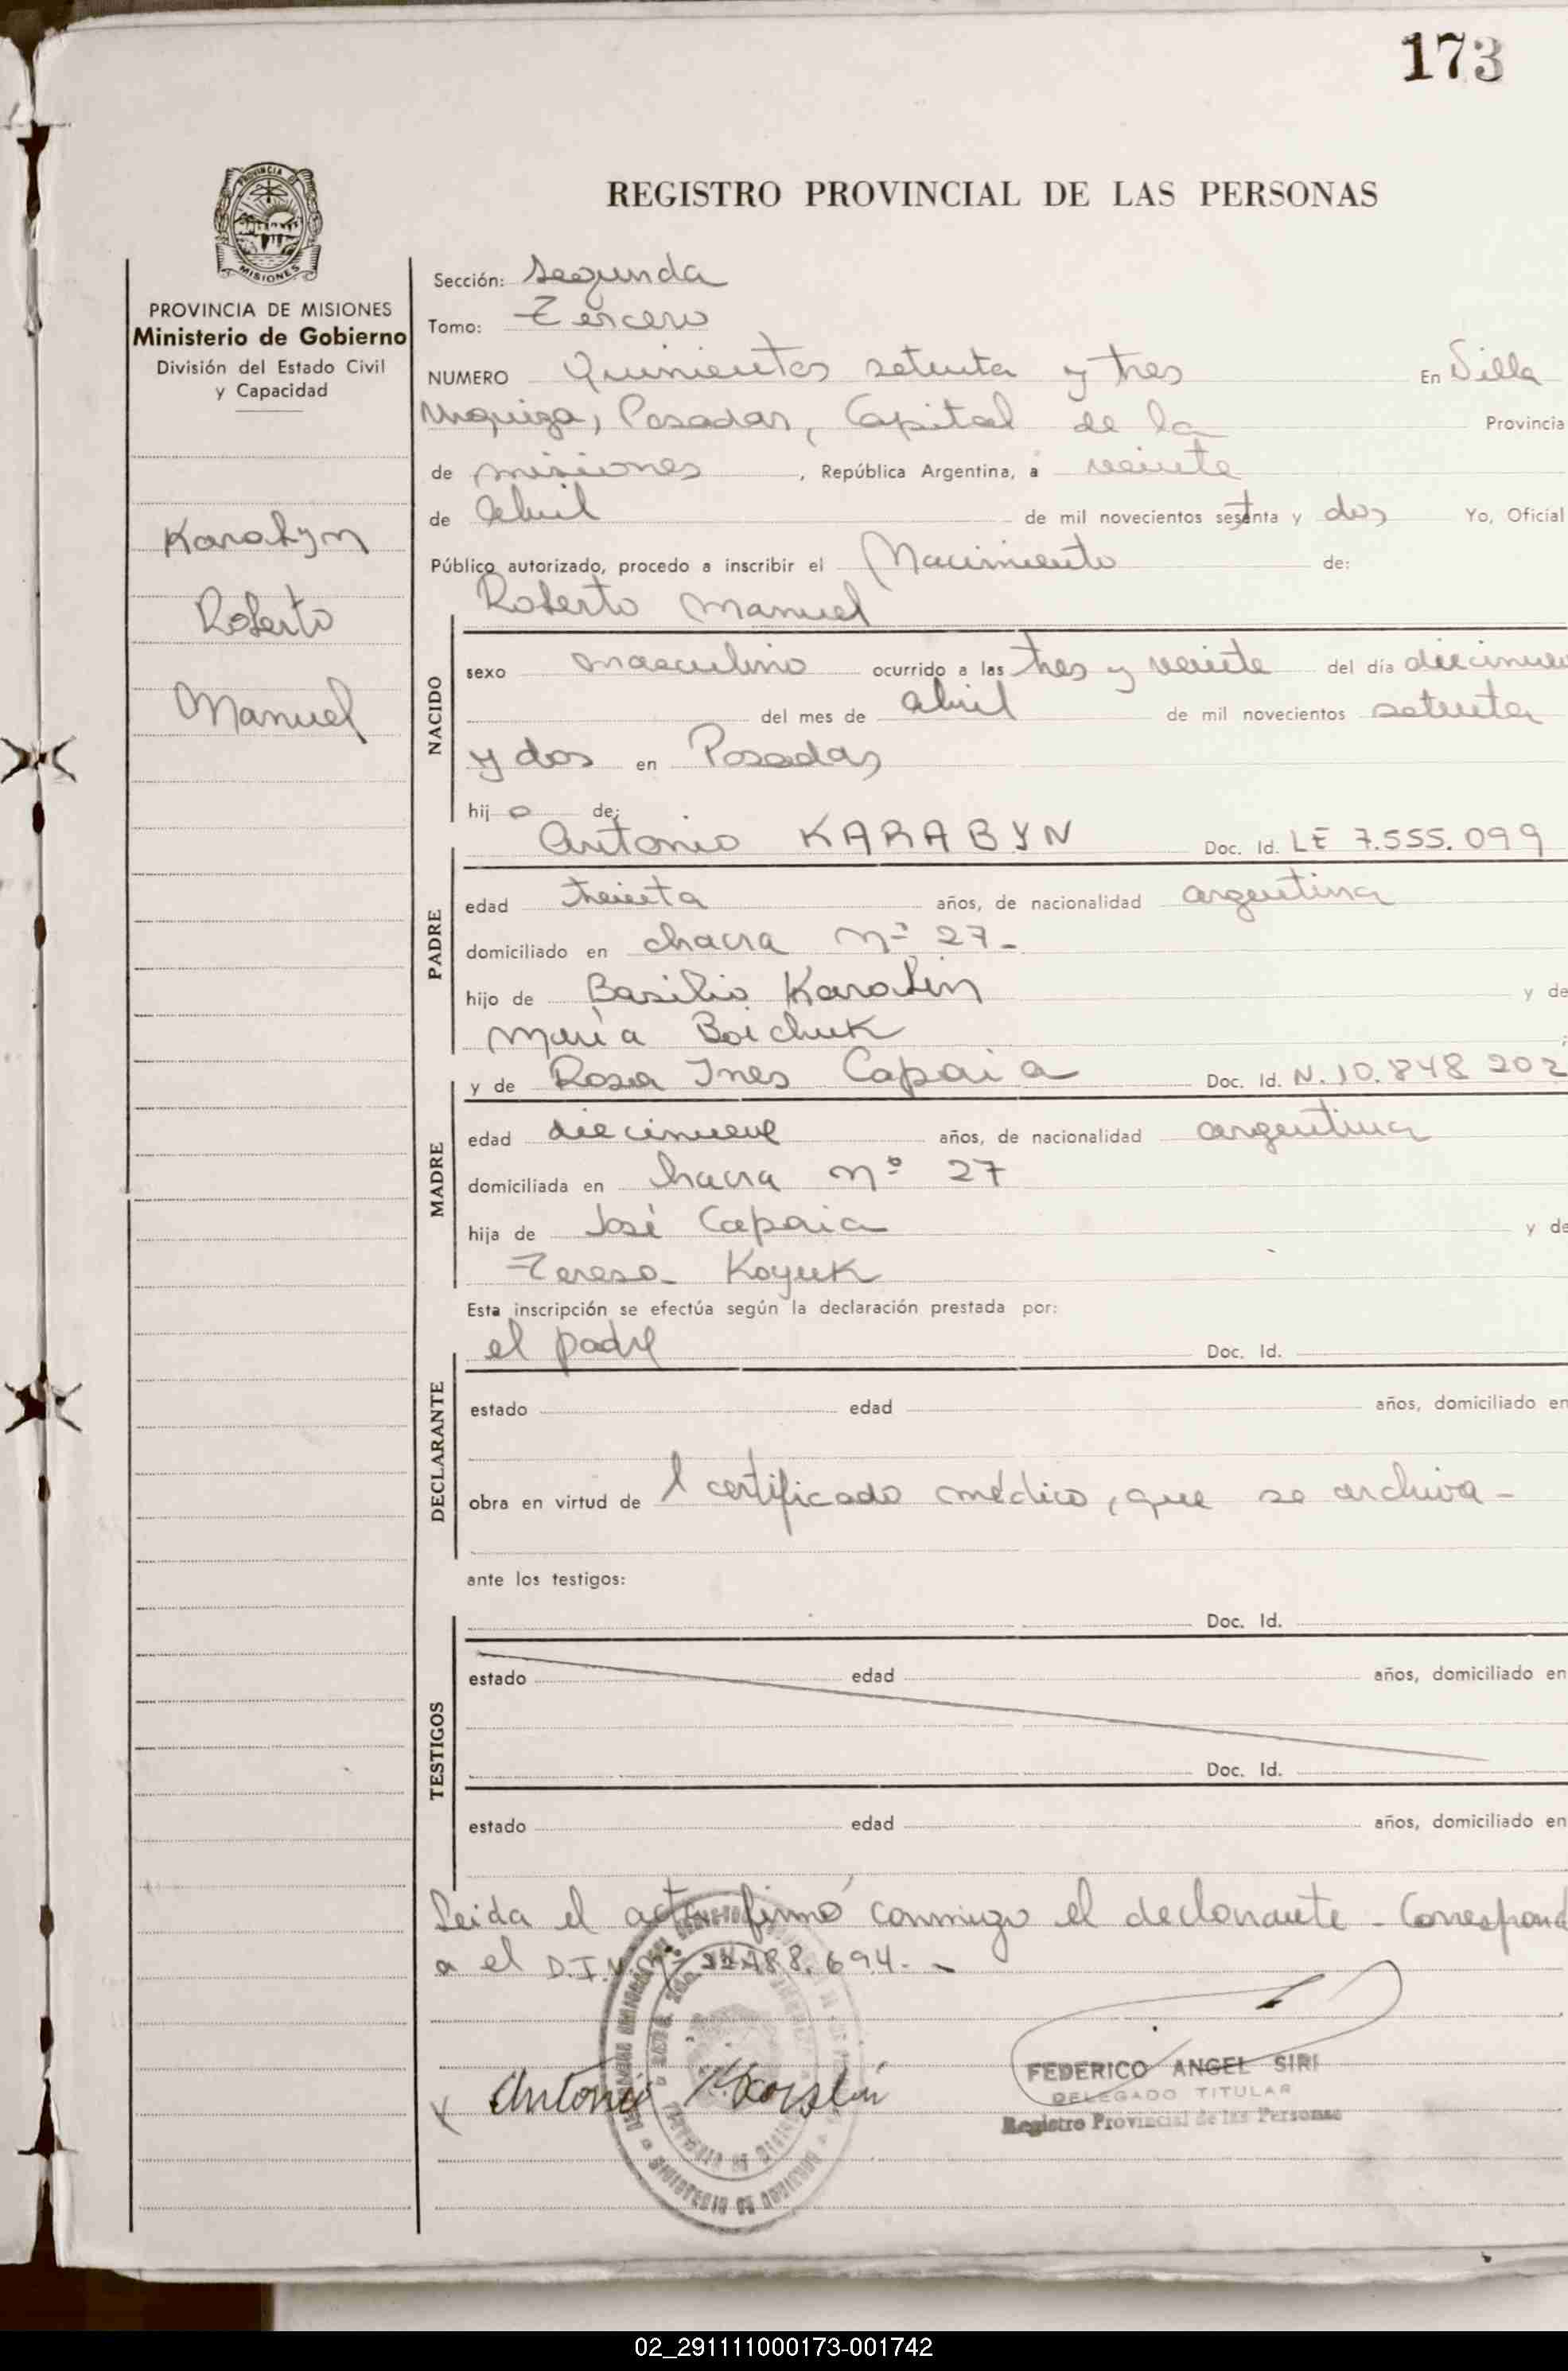 173
PROVINCIA
MISIONES
REGISTRO PROVINCIAL DE LAS PERSONAS
PROVINCIA DE MISIONES
Ministerio de Gobierno
División del Estado Civil
y Capacidad
Karabyn
Roberto
Manuel
Sección: Segunda
Tomo: Tercero
NUMERO Quinientos setenta y tres En Villa
Urquiza, Posadas, Capital de la Provincia
de misiones, República Argentina, a veinte
de abril de mil novecientos setenta y dos Yo, Oficial
Público autorizado, procedo a inscribir el Nacimiento de:
Roberto Manuel
NACIDO
sexo masculino ocurrido a las tres y veinte del día diecinueve
del mes de abril de mil novecientos setenta
y dos en Posadas
hijo de:
Antonio KARABYN Doc. Id. LE 7.555.099
PADRE
edad treinta años, de nacionalidad argentina
domiciliado en chacra nº 27-
hijo de Basilio Karabin y de
María Boichuk
y de Rosa Ines Capaia Doc. Id. N. 10.848 202
MADRE
edad diecinueve años, de nacionalidad argentina
domiciliada en chacra nº 27
hija de José Capaia y de
Teresa Koyuk
Esta inscripción se efectúa según la declaración prestada por:
el padre Doc. Id.
DECLARANTE
estado edad años, domiciliado en
obra en virtud de l certificado médico, que se archiva-
ante los testigos:
Doc. Id.
TESTIGOS
estado edad años, domiciliado en
Doc. Id.
estado edad años, domiciliado en
Leida el acta firmó conmigo el declarante - Correspond
a el D.I.N. Nº 694.-
Antonio
FEDERICO ANGEL SIRI
DELEGADO TITULAR
Registro Provincial de las Personas
02_291111000173-001742